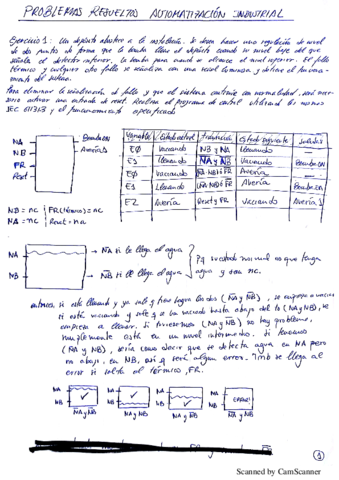 PROBLEMAS RESUELTOS AUTOMATIZACIÓN INDUSTRIAL
Ejercicio 1: Un depósito abastece a la instalación. Se desea hacer una regulación de nivel
de dos puntos de forma que la bomba llene el depósito cuando su nivel baje del que
señala el detector inferior, la bomba para cuando se alcance el nivel superior. El fallo
térmico y cualquier otro fallo se señaliza con una señal luminosa y detiene el funciona-
miento del sistema.
Para eliminar la señalización de fallo y que el sistema continúe con normalidad, será nece-
sario activar una entrada de reset. Realizar el programa de control utilizando las normas
IEC 61131-3 y el funcionamiento especificado
NA
NB
FR
Reset
Bomba ON
Avería 1
Variable Estado actual transición estado siguiente salidas
E0 Vaciando NB y NA Llenando
E1 Llenando NA y NB Vaciando Bomba ON
E0 Vaciando FR Avería
E1 Llenando FR Avería Bomba ON
E2 Avería Reset y FR Vaciando Avería 1
NB = nc FR (térmico) = nc
NA = nc Reset = na
NA
NB
NA si le llega el agua
NB si le llega el agua
Pq iniciado normal no que tenga
agua y son nc.
entonces, si está llenando y ya sale y hay agua los dos (NA y NB), se empieza a vaciar
si está vaciando y
empieza a llenar. Si tuviésemos (NA y NB) no hay problema,
simplemente está en un nivel intermedio. Si tenemos
(NA y NB), sería como decir que se detecta agua en NA pero
no abajo, en NB, así q sería algún error. Tmb se llega al
error si salta el térmico, FR.
NA NA NA NA
NB NB NB NB
ERROR!
NA y NB NA y NB NA y NB NA y NB
1
Scanned by CamScanner